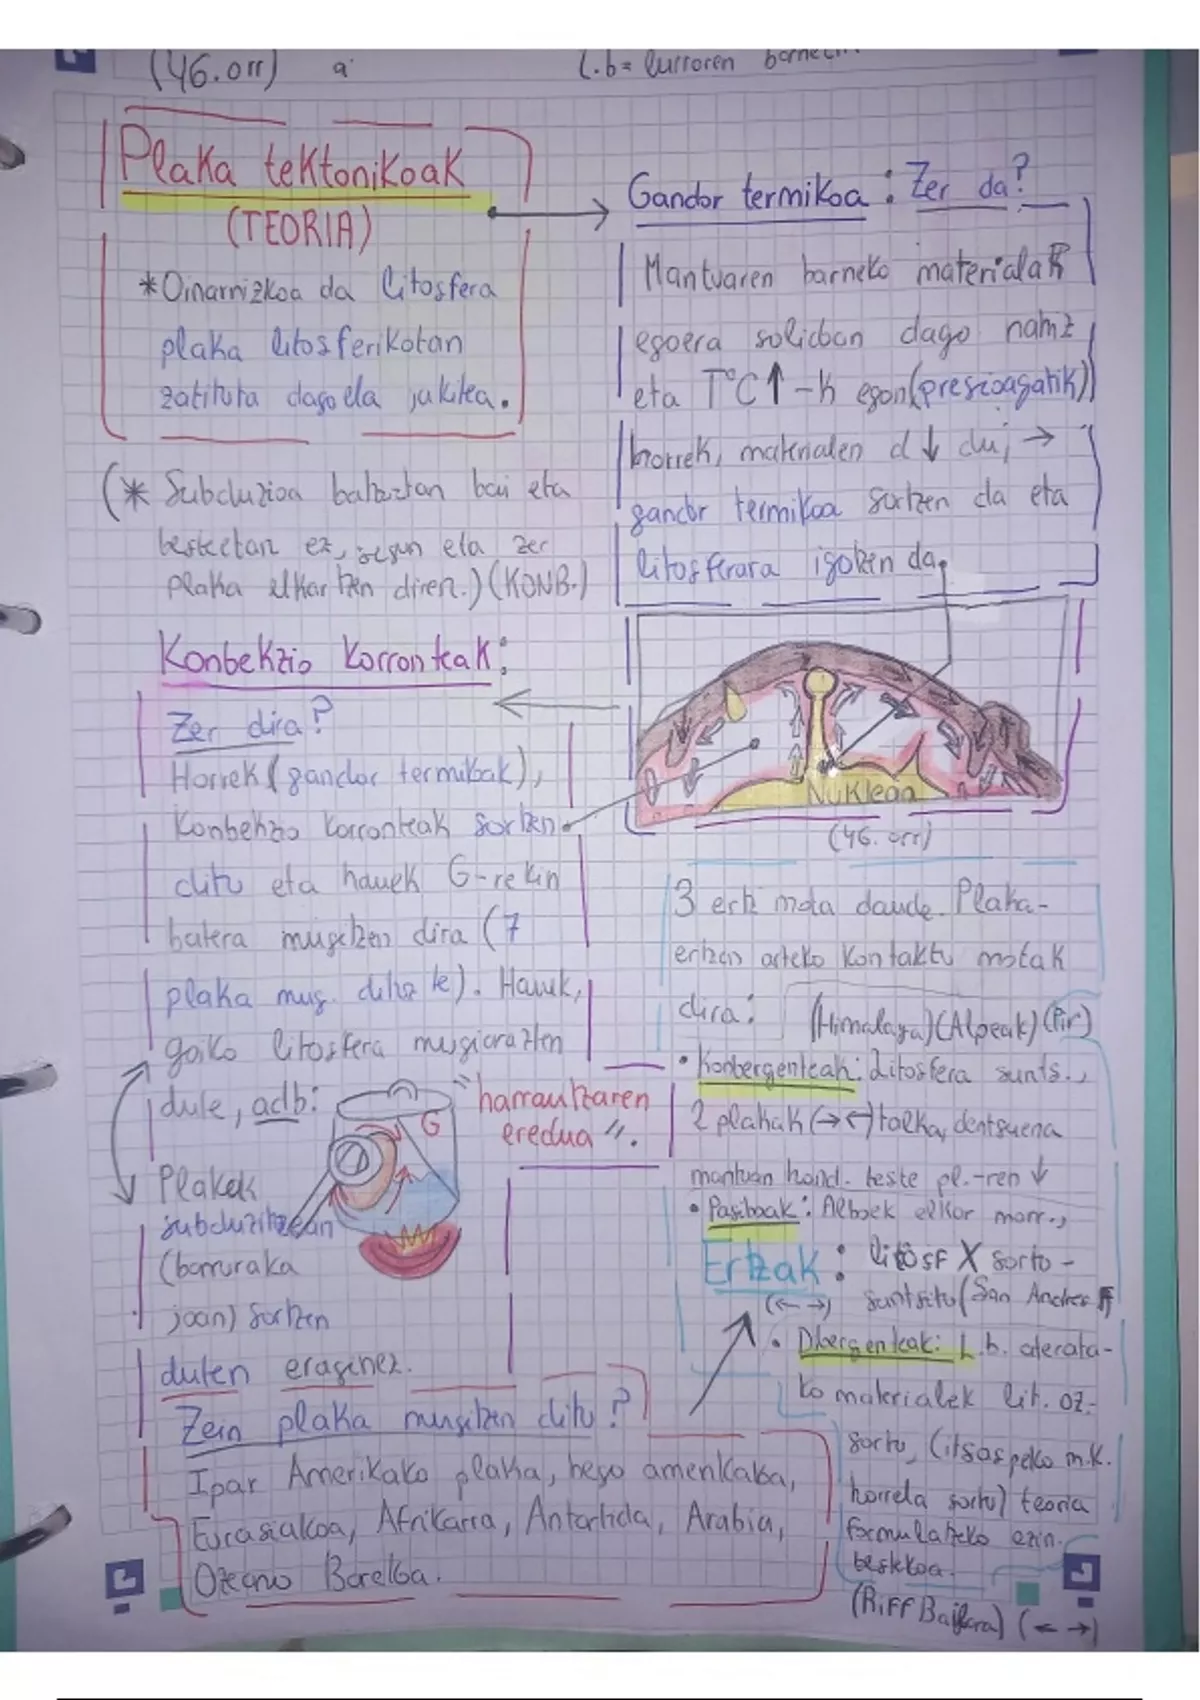 (46.orr)
L.b= lurraren
Plaka tektonikoak
(TEORIA)
*Oinarrizkoa da litosfera
plaka litosferikotan
zatituta dagoela jakitea.
(* Subdukzioa batzutan bai eta
besteetan ez, segun eta zer
plaka elkartzen diren.) (KONB.)
Gandor termikoa: Zer da?
Mantuaren barneko materialak
egoera solidoan dago nahiz
eta T°C↑-k egon (presioagatik)
horrek, materialen d↓ du, →
gandor termikoa sortzen da eta
litosferara igotzen da.
Nukleoa
(46. orr)
Konbekzio korronteak:
Zer dira?
Horrek (gandor termikoak),
Konbekzio korronteak sortzen
ditu eta hauek G-rekin
batera mugitzen dira (7
plaka mug. dituzte). Hauek,
goiko litosfera mugiarazten
dute, adb:
"harraultzaren
eredua".
G
Plakek
subduzitzean
(barruraka
joan) sortzen
duten eraginez.
Zein plaka mugitzen ditu?
Ipar Amerikako plaka, hego amerikakoa,
Eurasiakoa, Afrikarra, Antartida, Arabia,
Ozeano Barekoa.
3 ertz mota daude. Plaka-
ertzen arteko kontaktu motak
dira: (Himalaya)(Alpeak)(Pir)
• Konbergenteak: Litosfera sunts.,
2 plakak (→←) talka, dentsuena
mantuan hond. beste pl.-ren ↓
• Pasiboak: Alboek elkar marr.,
Ertzak: litosf X sortu-
(← →) suntsitu (San Andres
• Dibergenteak: L.b. ateratako
materialek lit. oz.
sortu, (itsaspeko m.k.
horrela sortu) teoria
formulatzeko ezin.
bestekoa.
(Riff Bailara) (← →)